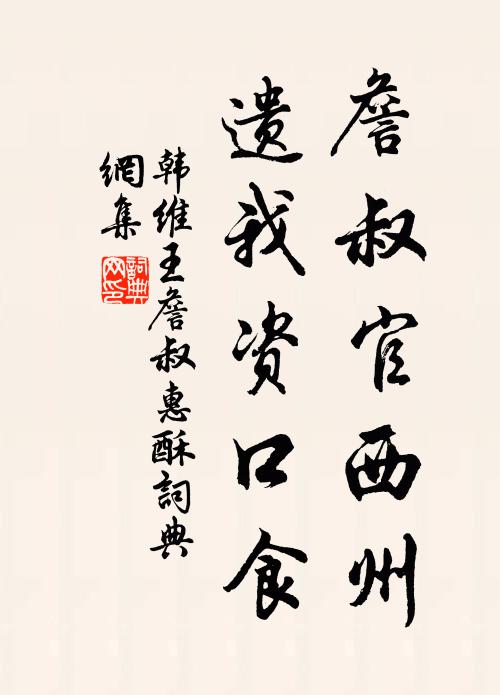 詹叔官西州
遺我资口食
韩維王詹叔惠酥詞典
網集
詞典
网印